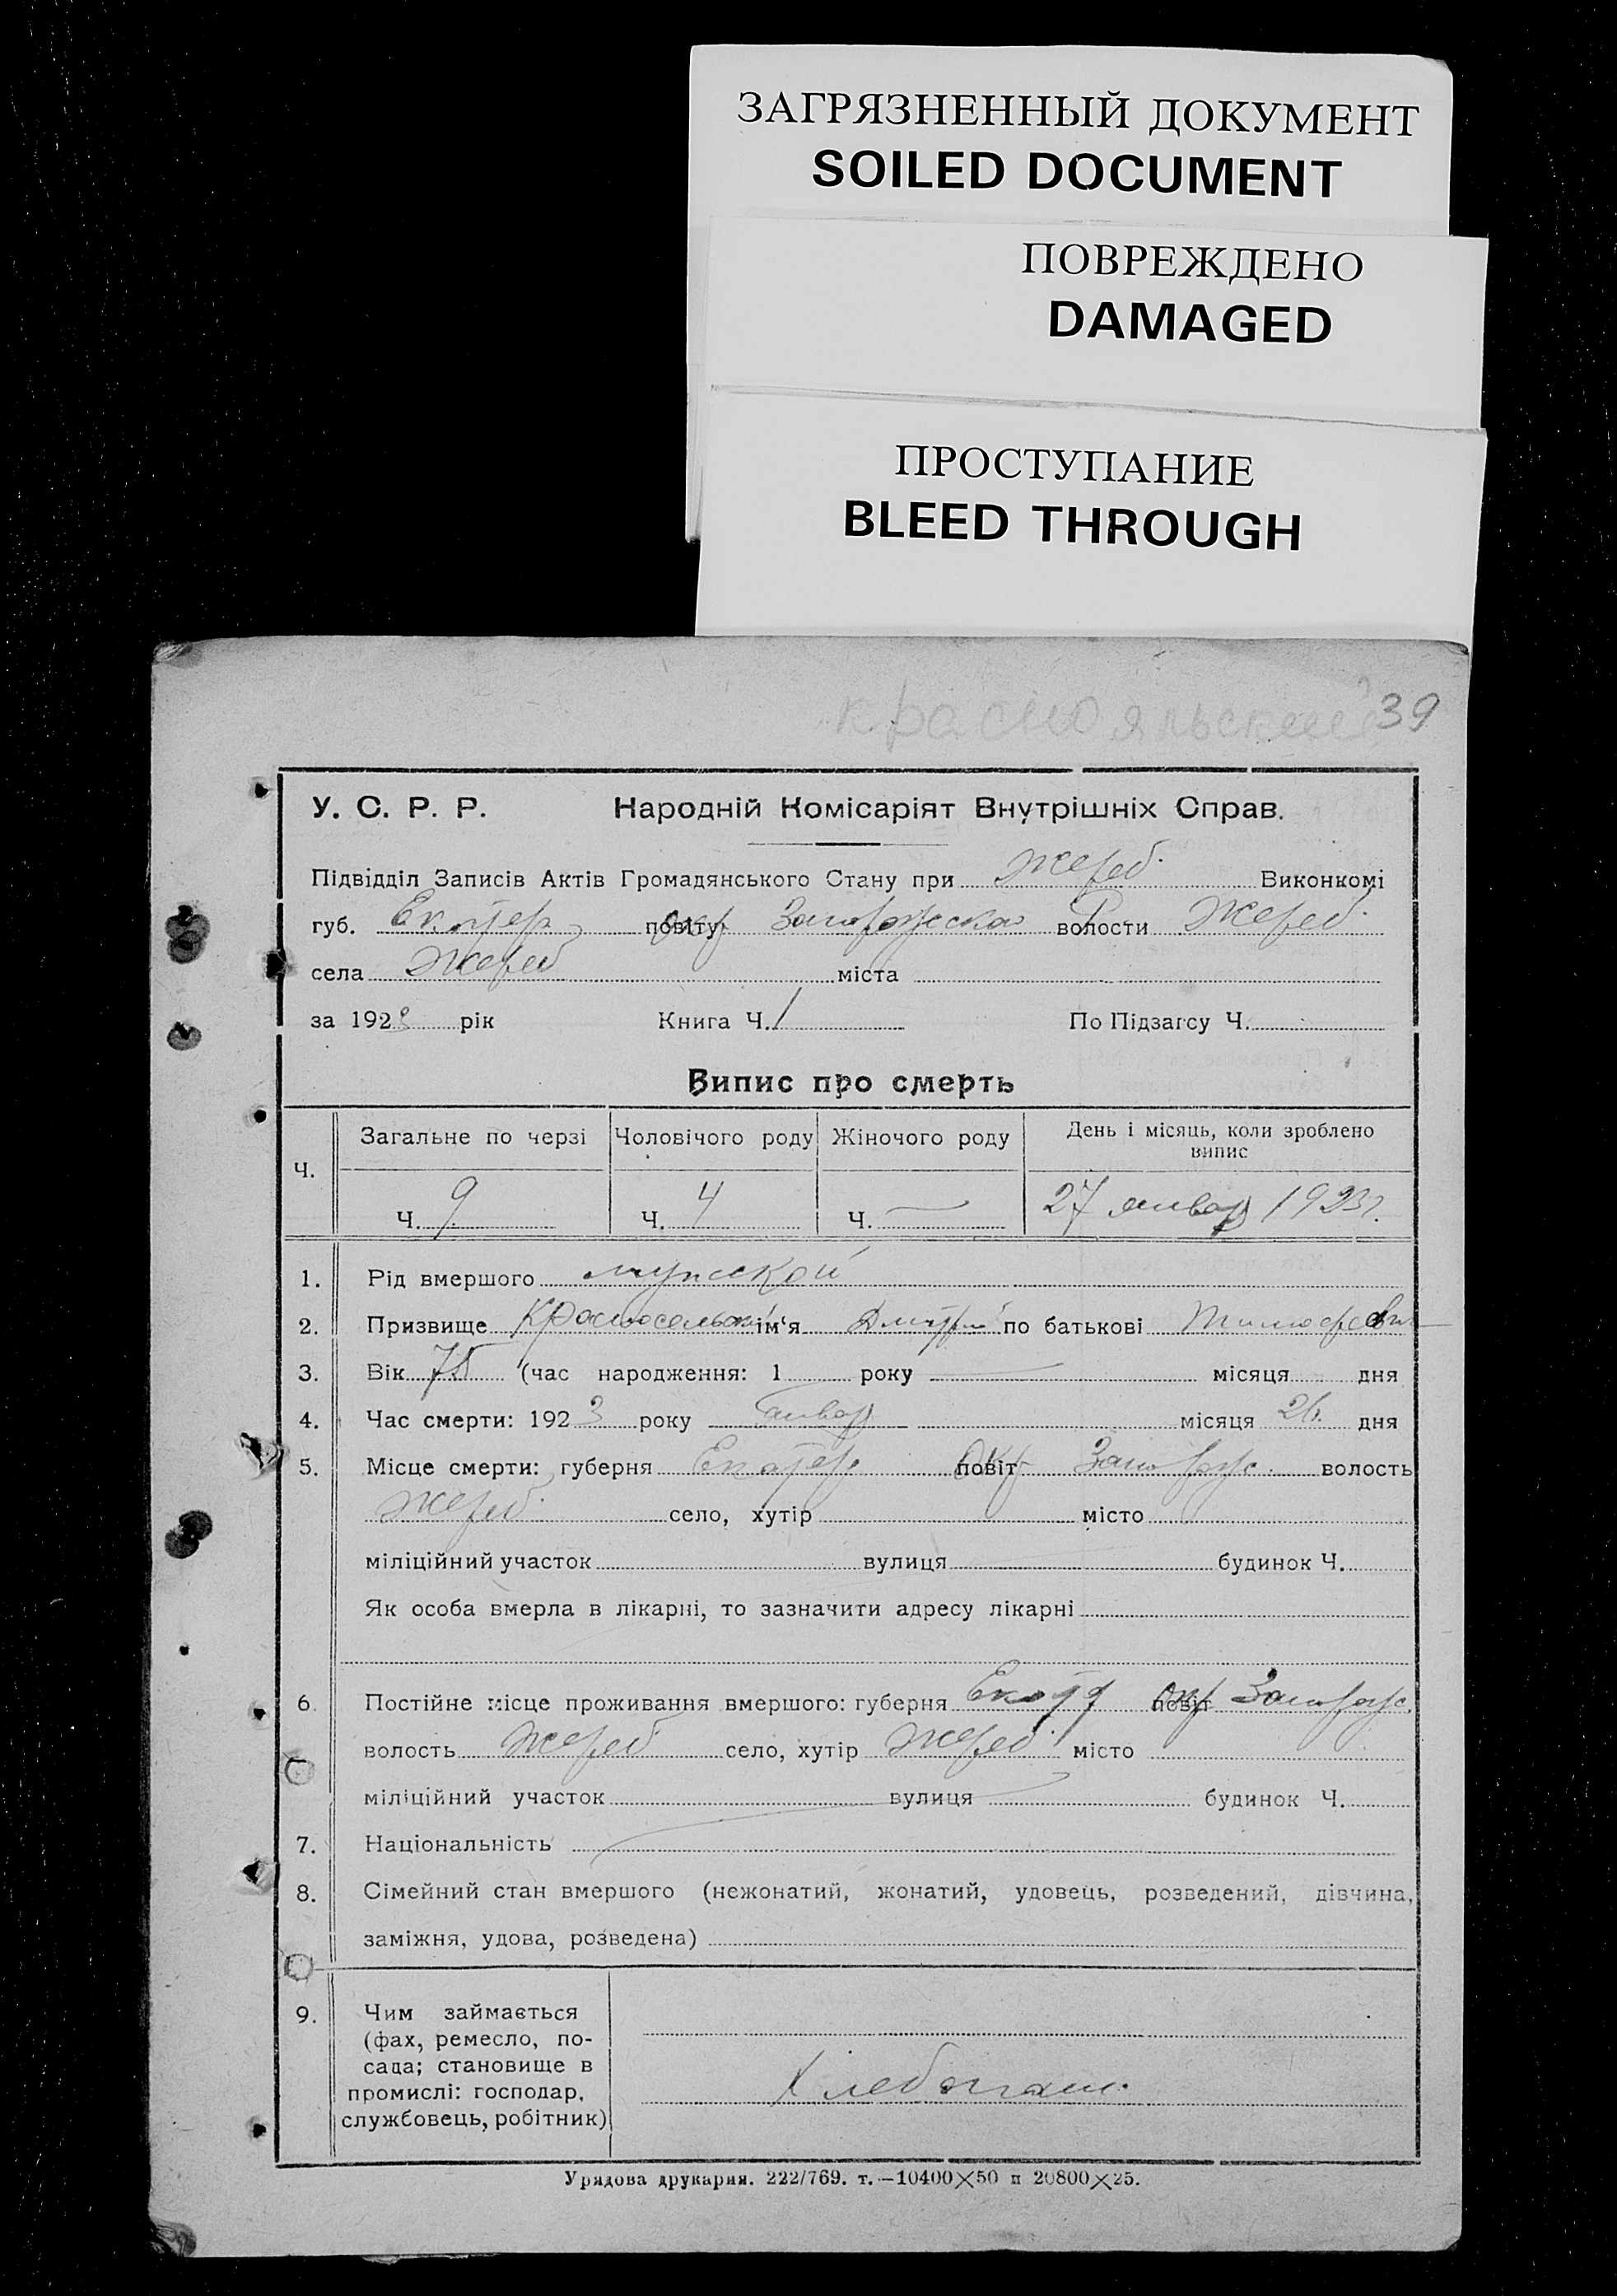 ЗАГРЯЗНЕННЫЙ ДОКУМЕНТ
SOILED DOCUMENT
ПОВРЕЖДЕНО
DAMAGED
ПРОСТУПАНИЕ
BLEED THROUGH
39
У. С. Р. Р. Народній Комісаріят Внутрішніх Справ.
Підвідділ Записів Актів Громадянського Стану при Жереб. Виконкомі
губ. Екатер повіту окр волости Жереб.
села Жереб міста
за 1923 рік Книга Ч. 1 По Підзагсу Ч.
Випис про смерть
Ч. Загальне по черзі Чоловічого роду Жіночого роду День і місяць, коли зроблено
випис
Ч. 9 Ч. 4 Ч. — 27 январ 1923г.
1. Рід вмершого мужской
2. Призвище Красносельск ім‘я Дмитрий по батькові
3. Вік 75 (час народження: 1 року — місяця дня
4. Час смерти: 1923 року январ місяця 26. дня
5. Місце смерти: губерня Екатер повіт окр Запорож. волость
Жереб. село, хутір місто
міліційний участок вулиця будинок Ч.
Як особа вмерла в лікарні, то зазначити адресу лікарні
6. Постійне місце проживання вмершого: губерня Екатер повіт окр Запорож.
волость Жереб село, хутір Жереб. місто
міліційний участок вулиця будинок Ч.
7. Національність
8. Сімейний стан вмершого (нежонатий, жонатий, удовець, розведений, дівчина,
заміжня, удова, розведена)
9. Чим займається
(фах, ремесло, по-
сада; становище в
промислі: господар,
службовець, робітник)
Хлебопаш.
Урядова друкарня. 222/769. т.—10400×50 п 20800×25.